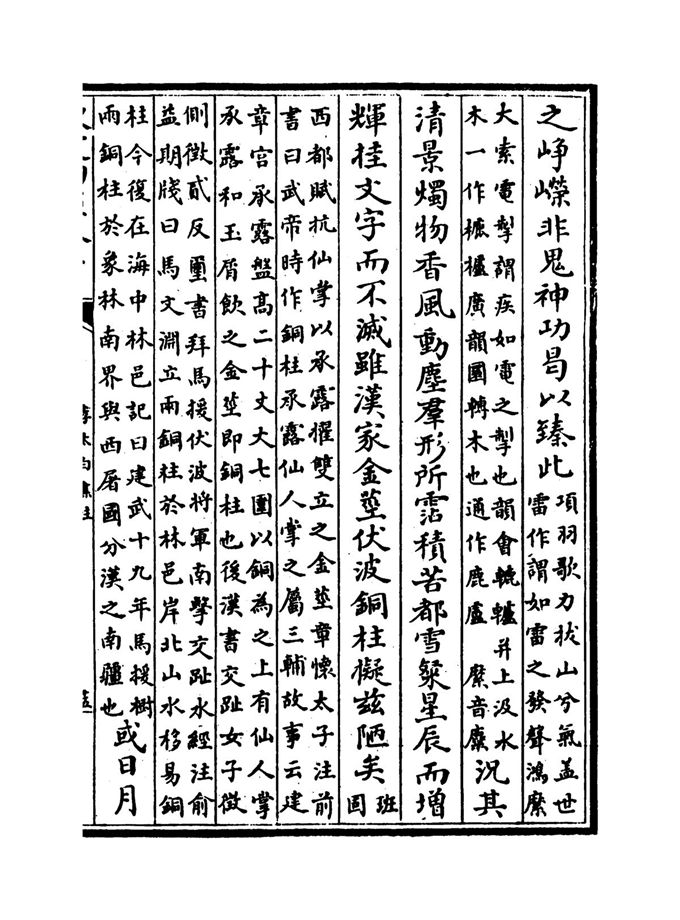 之峥嶸非鬼神功曷以臻此項羽歌力拔山兮氣盖世
雷作謂如雷之發聲鴻縻
大索電掣謂疾如電之掣也韻會轆轤井上汲水
木一作樚櫨廣韻圓轉木也通作鹿盧 縻音糜況其
清景燭物香風動塵羣形所霑積苦都雪粲星辰而增
輝挂文字而不滅雖漢家金莖伏波銅柱擬兹陋矣班
固
西都賦抗仙掌以承露擢雙立之金莖章懷太子注前
書曰武帝時作銅柱承露仙人掌之屬三輔故事云建
章宫承露盤髙二十丈大七圍以銅為之上有仙人掌
承露和玉屑飲之金莖即銅柱也後漢書交趾女子徵
側徵貳反璽書拜馬援伏波将軍南擊交趾水經注俞
益期牋曰馬文淵立兩銅柱於林邑岸北山水移易銅
柱今復在海中林邑記曰建武十九年馬援樹
兩銅柱於象林南界與西屠國分漢之南疆也或日月